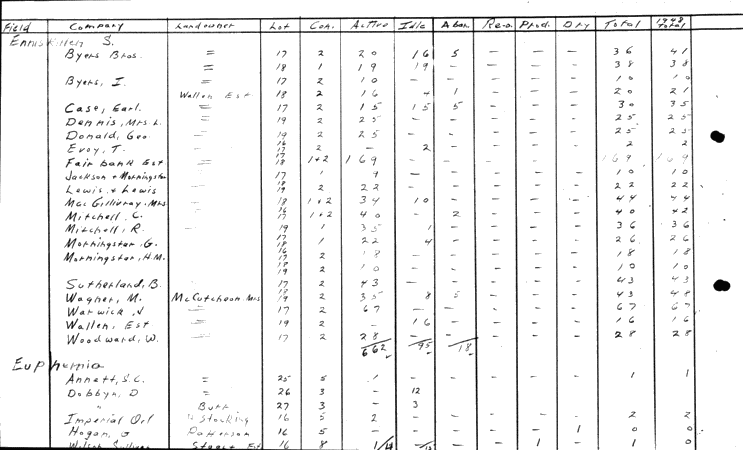 Field Company Landowner Lot Con. Active Idle Aban. Rea. Prod. Dry Total 1948 Total
Enniskillen S.
Byers Bros. = 17 2 20 16 5 - - - 36 41
= 18 1 19 19 - - - - 38 38
Byers, I. = 17 2 10 - - - - - 10 10
Wallen Est 18 2 16 4 1 - - - 20 21
Case, Earl. = 17 2 15 15 5 - - - 30 35
Dennis, Mrs. L. = 19 2 25 - - - - - 25 25
Donald, Geo. 19 2 25 - - - - - 25 25
Evoy, T. 16 17 2 - 2 - - - - 2 2
Fairbank Est 17 18 1+2 169 - - - - - 169 169
Jackson + Morningstar 17 1 9 - - - - - 10 10
Lewis + Lewis 18 19 2 22 - - - - - 22 22
Mac Gillivray, Mrs 18 1+2 34 10 - - - - 44 44
Mitchell, C. 16 17 1+2 40 - 2 - - - 40 42
Mitchell, R. 19 1 35 1 - - - - 36 36
Morningstar, G. 17 18 1 22 4 - - - - 26 26
Morningstar, H.M. 16 17 2 18 - - - - - 18 18
18 19 2 10 - - - - - 10 10
Sutherland, B. 17 2 43 - - - - - 43 43
Wagner, M. McCutcheon Mrs 18 19 2 35 8 5 - - - 43 48
Warwick, N 17 2 67 - - - - - 67 67
Wallen, Est 19 2 - 16 - - - - 16 16
Woodward, W. 17 2 28 - - - - - 28 28
662 95 18
Euphemia
Annett, S.C. = 25 5 1 - - - - - 1 1
Dobbyn, D = 26 3 - 12
" Burr 27 3 - 3
Imperial Oil Stocking 16 5 2 - - - - - 2 2
Hogan, J Patterson 16 5 - - - - - 1 0 0
Sullivan Stewart Est 16 8 - 1 - 1 0